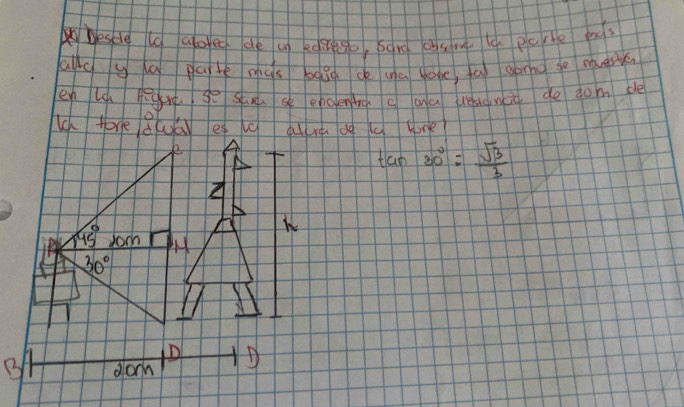 Desde la azotea de un edificio, Sara observa la parte más
alta y la parte más baja de una torre, tal como se muestra
en la figura. Si Sara se encuentra a una distancia de 20m de
la torre, ¿Cuál es la altura de la torre?
tan 30° = √3/3
C
A 45° 20m H
30°
h
B D D
20m